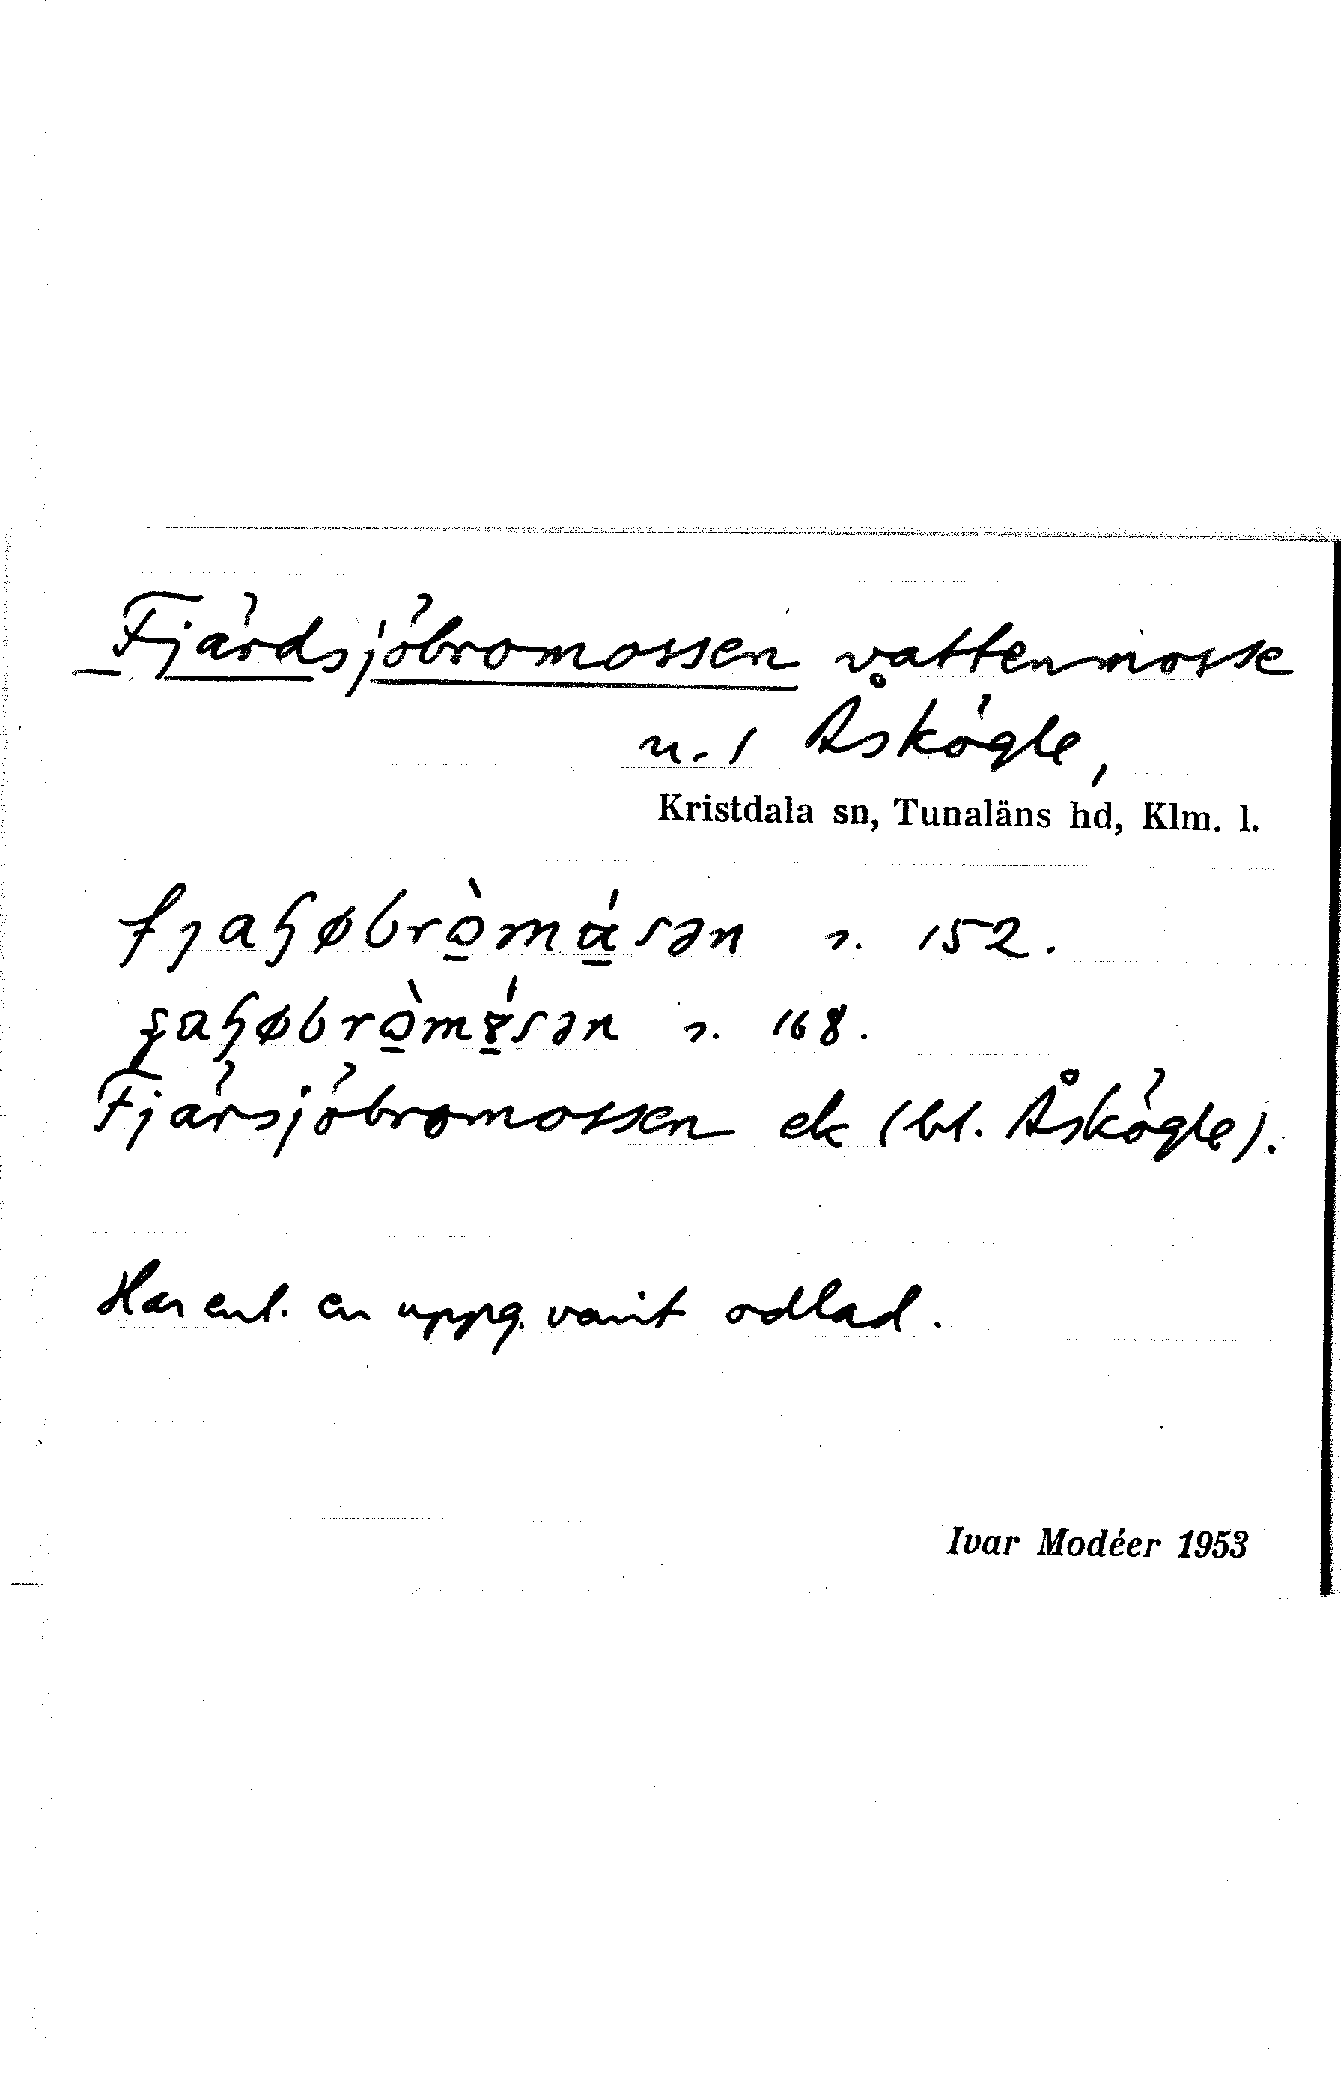 Fjärdsjöbromossen vattenmosse
n. 1 Åskögle,
Kristdala sn, Tunaläns hd, Klm. l.
152.
168.
Fjärsjöbromossen ek (bl. Åskögle).
Har enl. en uppg. varit odlad.
Ivar Modéer 1953